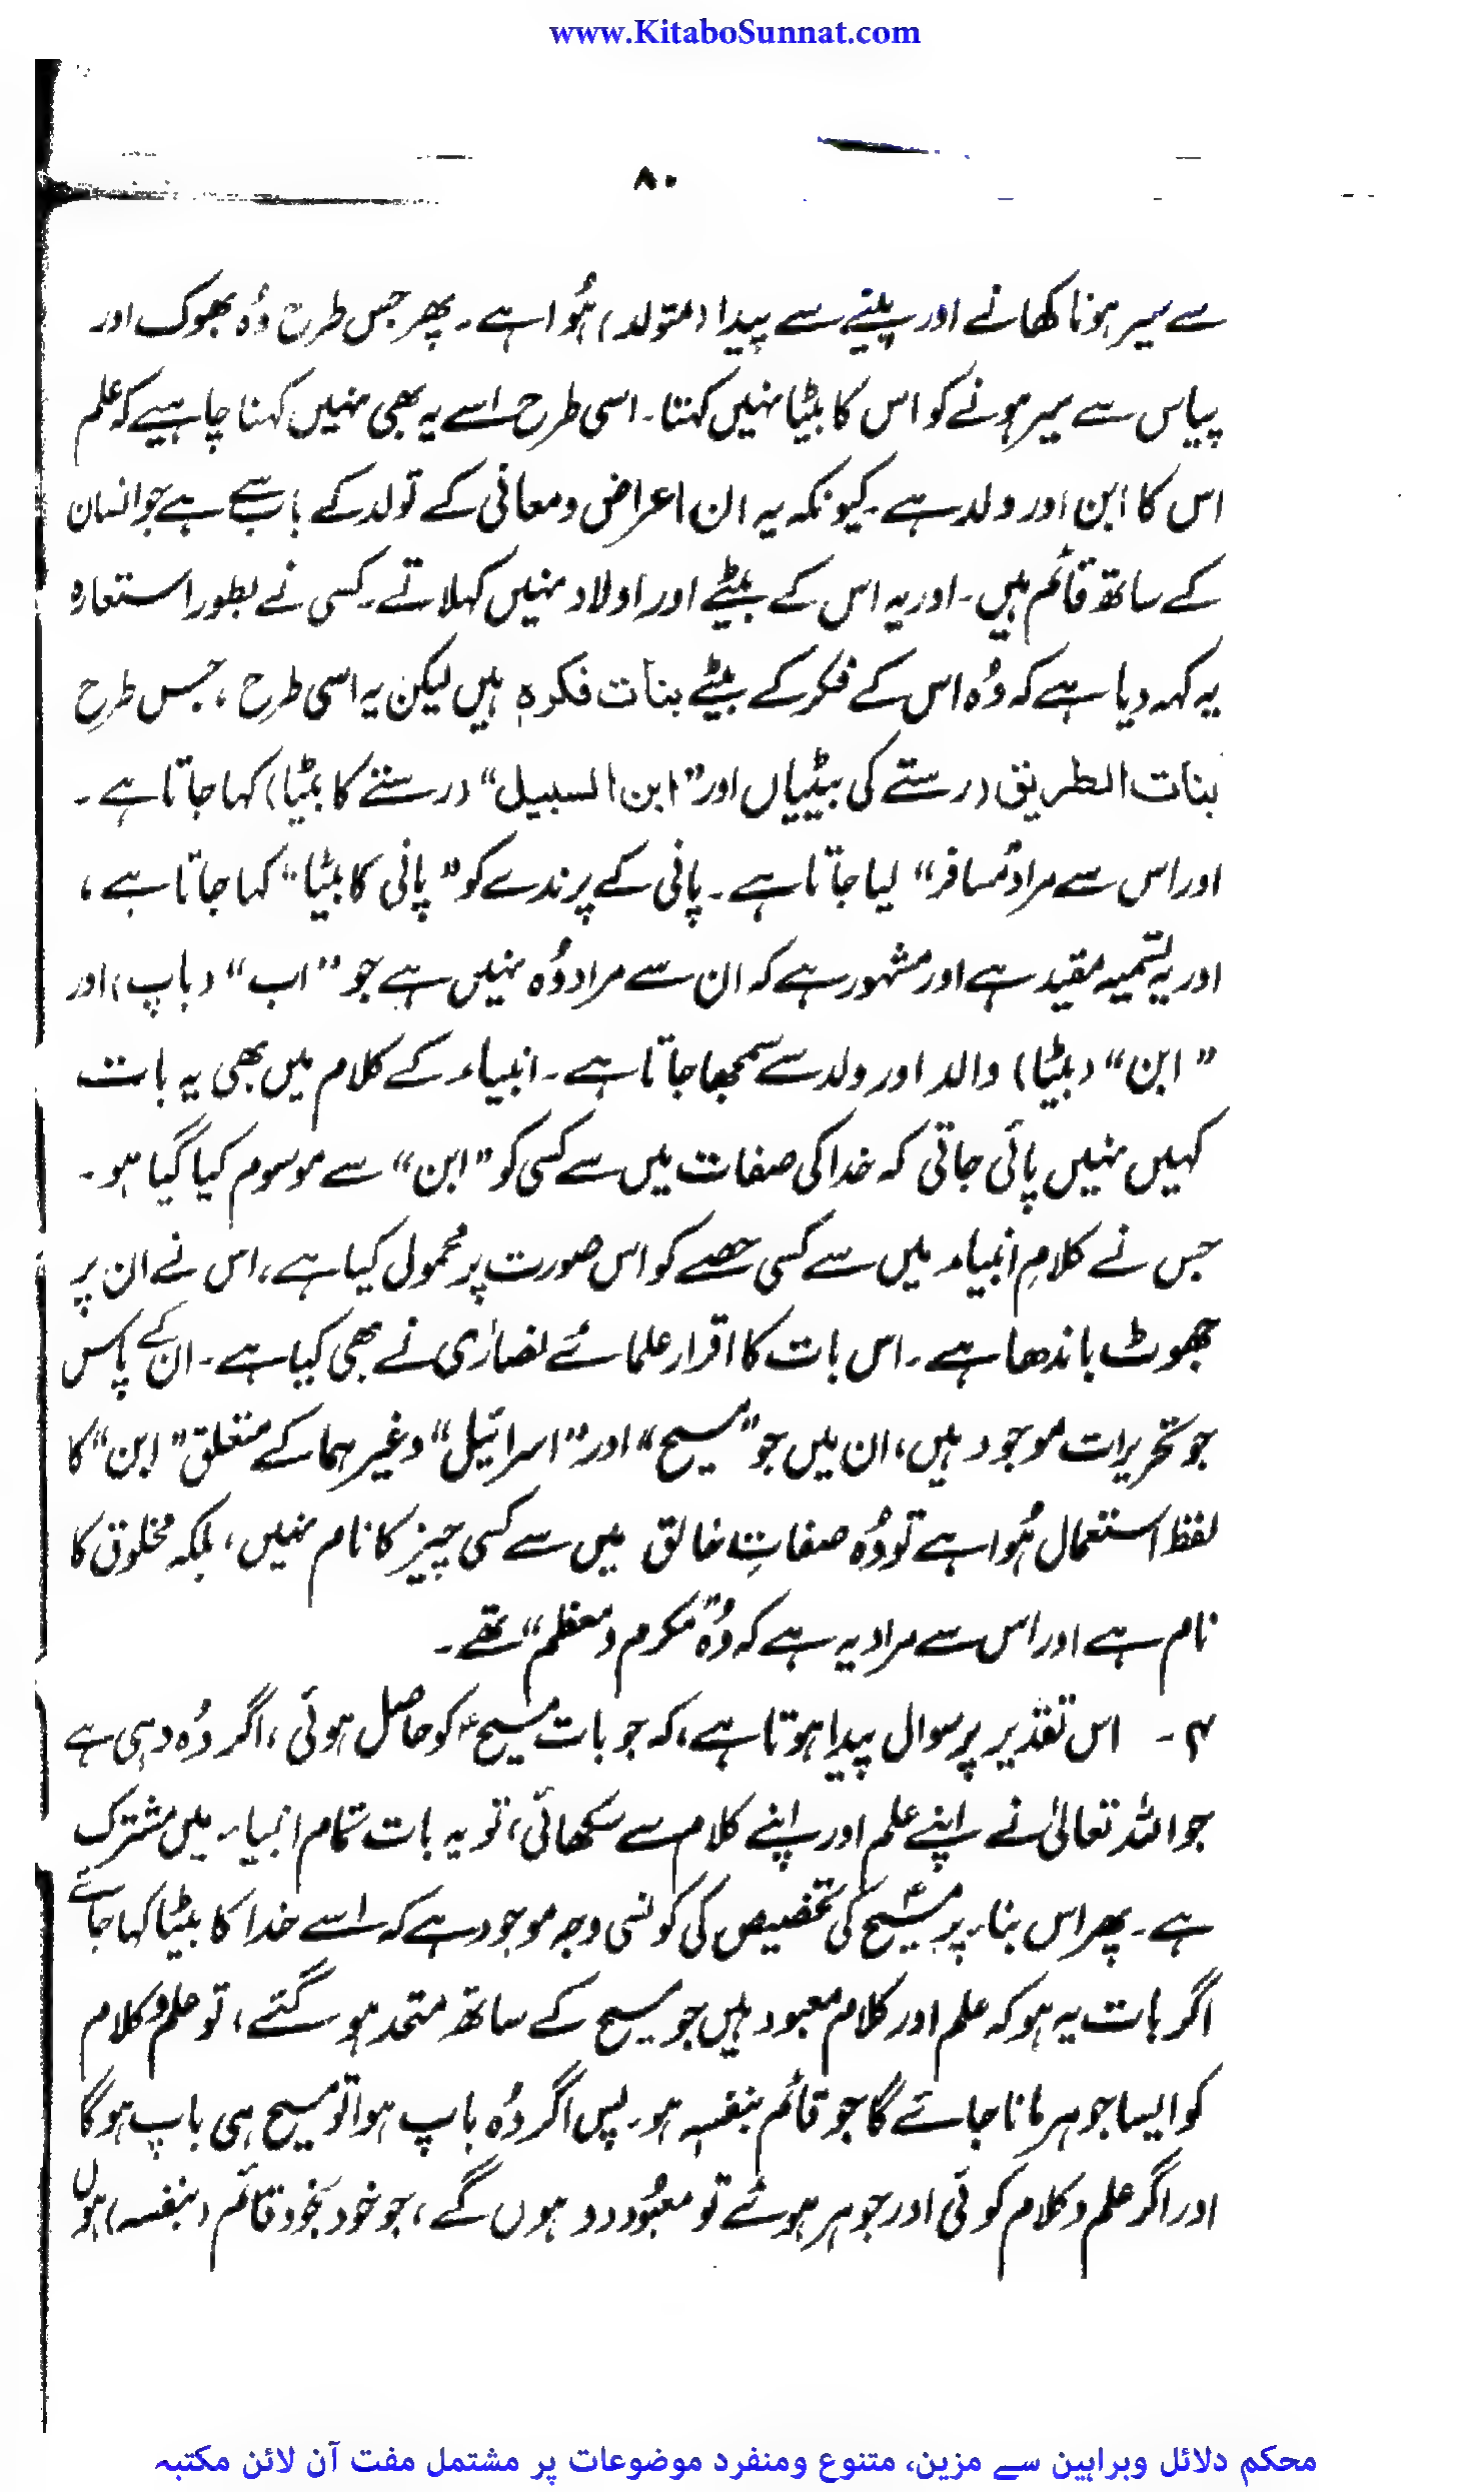 www.KitaboSunnat.com
۸۰
سے سیر ہونا کھانے اور پینے سے پیدا (متولد) ہُوا ہے۔ پھر جس طرح وُہ بھوک اور
پیاس سے سیر ہونے کو اس کا بیٹا نہیں کہتا۔ اسی طرح اسے یہ بھی نہیں کہنا چاہیے کہ علم
اس کا ابن اور ولد ہے۔ کیونکہ یہ ان اعراض و معانی کے تولد کے باب سے ہے جو انسان
کے ساتھ قائم ہیں۔ اور یہ اس کے بیٹے اور اولاد نہیں کہلاتے۔ کسی نے بطور استعارہ
یہ کہہ دیا ہے کہ وُہ اس کے فکر کے بیٹے بنات فکرہٖ ہیں لیکن یہ اسی طرح ، جس طرح
بنات الطریق (رستے کی بیٹیاں اور "ابن السبیل" (رستے کا بیٹا) کہا جاتا ہے۔
اور اس سے مراد "مسافر" لیا جاتا ہے۔ پانی کے پرندے کو "پانی کا بیٹا" کہا جاتا ہے ،
اور یہ تسمیہ مقید ہے اور مشہور ہے کہ ان سے مراد وُہ نہیں ہے جو "اب" (باپ) اور
"ابن" (بیٹا) والد اور ولد سے سمجھا جاتا ہے۔ انبیاء کے کلام میں بھی یہ بات
کہیں نہیں پائی جاتی کہ خدا کی صفات میں سے کسی کو "ابن" سے موسوم کیا گیا ہو۔
جس نے کلامِ انبیاء میں سے کسی حصے کو اس صورت پر محمول کیا ہے، اس نے ان پر
جھوٹ باندھا ہے۔ اس بات کا اقرار علمائے نصارٰی نے بھی کیا ہے۔ ان کے پاس
جو تحریرات موجود ہیں، ان میں جو "مسیح" اور "اسرائیل" وغیرہما کے متعلق "ابن" کا
لفظ استعمال ہُوا ہے تو وُہ صفاتِ خالق میں سے کسی چیز کا نام نہیں، بلکہ مخلوق کا
نام ہے اور اس سے مراد یہ ہے کہ وُہ "مکرم و معظم" تھے۔
۴۔ اس تقدیر پر سوال پیدا ہوتا ہے، کہ جو بات مسیحؑ کو حاصل ہوئی ، اگر وُہ وہی ہے
جو اللہ تعالیٰ نے اپنے علم اور اپنے کلام سے سکھائی، تو یہ بات تمام انبیاء میں مشترک
ہے۔ پھر اس بناء پر مسیحؑ کی تخصیص کی کونسی وجہ موجود ہے کہ اسے خدا کا بیٹا کہا جائے
اگر بات یہ ہو کہ علم اور کلام معبود ہیں جو مسیح کے ساتھ متحد ہو گئے، تو علم و کلام
کو ایسا جوہر مانا جائے گا جو قائم بنفسہٖ ہو۔ پس اگر وُہ باپ ہوا تو مسیح ہی باپ ہو گا
اور اگر علم و کلام کوئی اور جوہر ہوئے تو معبُود دو ہوں گے ، جو خود بخود قائم (بنفسہ) ہوں
محکم دلائل وبراہین سے مزین، متنوع ومنفرد موضوعات پر مشتمل مفت آن لائن مکتبہ